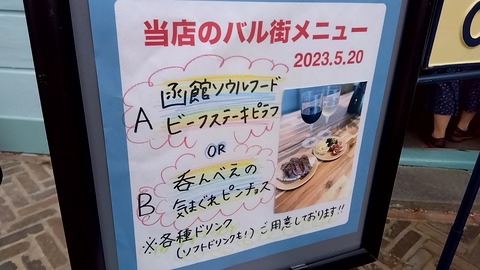 当店のバル街メニュー
2023.5.20
A 函館ソウルフード
ビーフステーキピラフ
OR
B 呑んべえの
気まぐれピンチョス
※各種ドリンク
(ソフトドリンクも!)ご用意しております!!